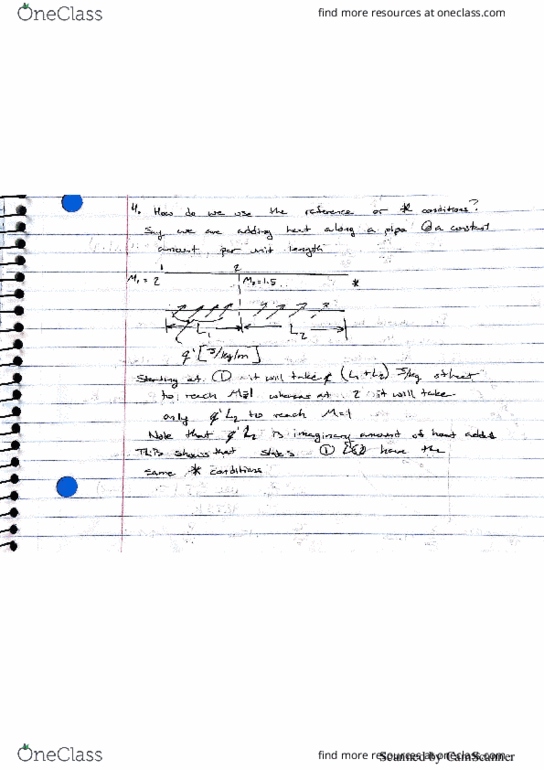 OneClass
find more resources at oneclass.com
4. How do we use the reference or * conditions?
Say we are adding heat along a pipe @ a constant
amount per unit length
1 2
M₁ = 2 M₂ = 1.5 *
L₁ L₂
q' [J/kg/m]
Starting at ① it will take q' (L₁+L₂) J/kg of heat
to reach M=1 whereas at 2 it will take
only q'L₂ to reach M=1
Note that q'L₂ is imaginary amount of heat added
This shows that states ① & ② have the
same * conditions
OneClass
find more resources at oneclass.com
Scanned by CamScanner